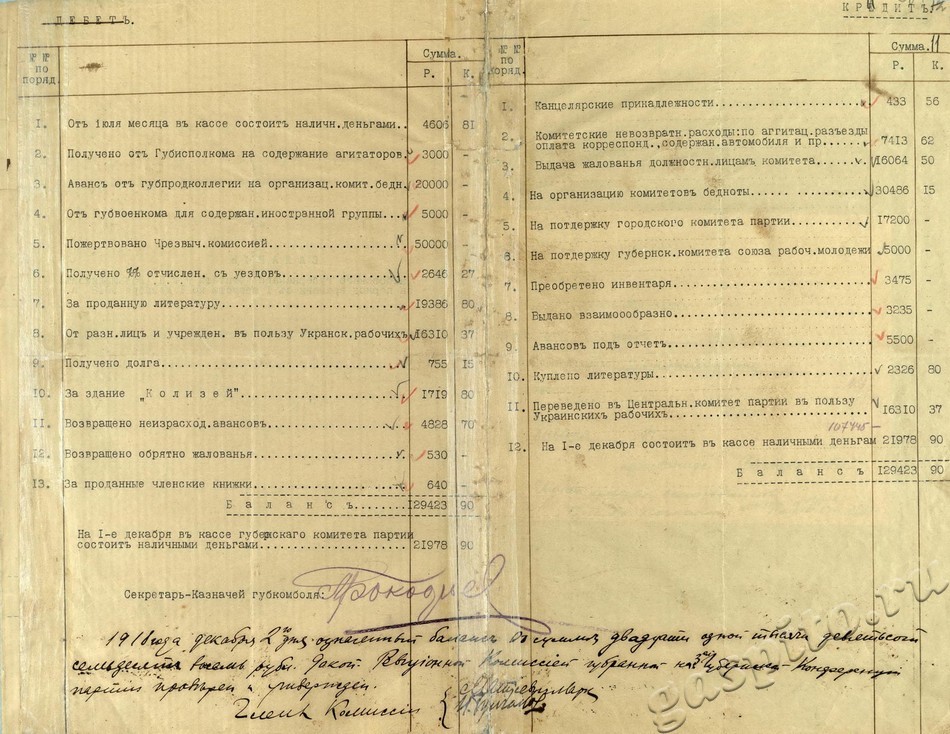 ДЕБЕТЪ.
№ №
по
поряд.
Сумма.
Р. К.
1. Отъ 1юля месяца въ кассе состоитъ наличн.деньгами.. 4606 81
2. Получено отъ Губисполкома на содержание агитаторов. 3000 -
3. Авансъ отъ губпродколлегии на организац.комит.бедн. 20000 -
4. Отъ губвоенкома для содержан.иностранной группы.... 5000 -
5. Пожертвовано Чрезвыч.комиссией.................... 50000 -
6. Получено отчислен. съ уездовъ................ 2646 27
7. За проданную литературу........................ 19386 80
8. От разн.лицъ и учрежден. въ пользу Укранск.рабочихъ 16310 37
9. Получено долга.................................. 755 15
10. За здание „К о л и з е й"...................... 1719 80
11. Возвращено неизрасход.авансовъ................ 4828 70
12. Возвращено обрятно жалованья.................. 530 -
13. За проданные членские книжки.................. 640 -
Б а л а н с ъ....... 129423 90
На 1-е декабря въ кассе губернскаго комитета партии
состоитъ наличными деньгами..................... 21978 90
Секретарь-Казначей губкомбола:
К Р Е Д И Т Ъ
11
№ №
по
поряд.
Сумма.
Р. К.
1. Канцелярские прикадлежности.................... 433 56
2. Комитетские невозвратн.расходы:по аггитац.разъезды
оплата корреспонд.,содержан.автомобиля и пр...... 7413 62
3. Выдача жалованья должностн.лицамъ комитета...... 16064 50
4. На организацию комитетовъ бедноты..... ......... 30486 15
5. На потдержку городского комитета партии......... 17200 -
6. На потдержку губернск.комитета союза рабоч.молодежи 5000 -
7. Преобретено инвентаря.......................... 3475 -
8. Выдано взаимоообразно.......................... 3235 -
9. Авансовъ подъ отчетъ........................... 5500 -
10. Куплено литературы............................ 2326 80
11. Переведено въ Центральн.комитет партии въ пользу
Украинскихъ рабочихъ.......................... 16310 37
107445-
12. На 1-е декабря состоитъ въ кассе наличными деньгам 21978 90
Б а л а н с ъ 129423 90
1918 года декабря 2го дня баланс двадцати одной тысячи девятьсот
семьдесят восемь руб. Ревизионной Комиссией избранной на Конференции
партии проверен и утвержден.
Члены Комиссии
gaspiru.ru